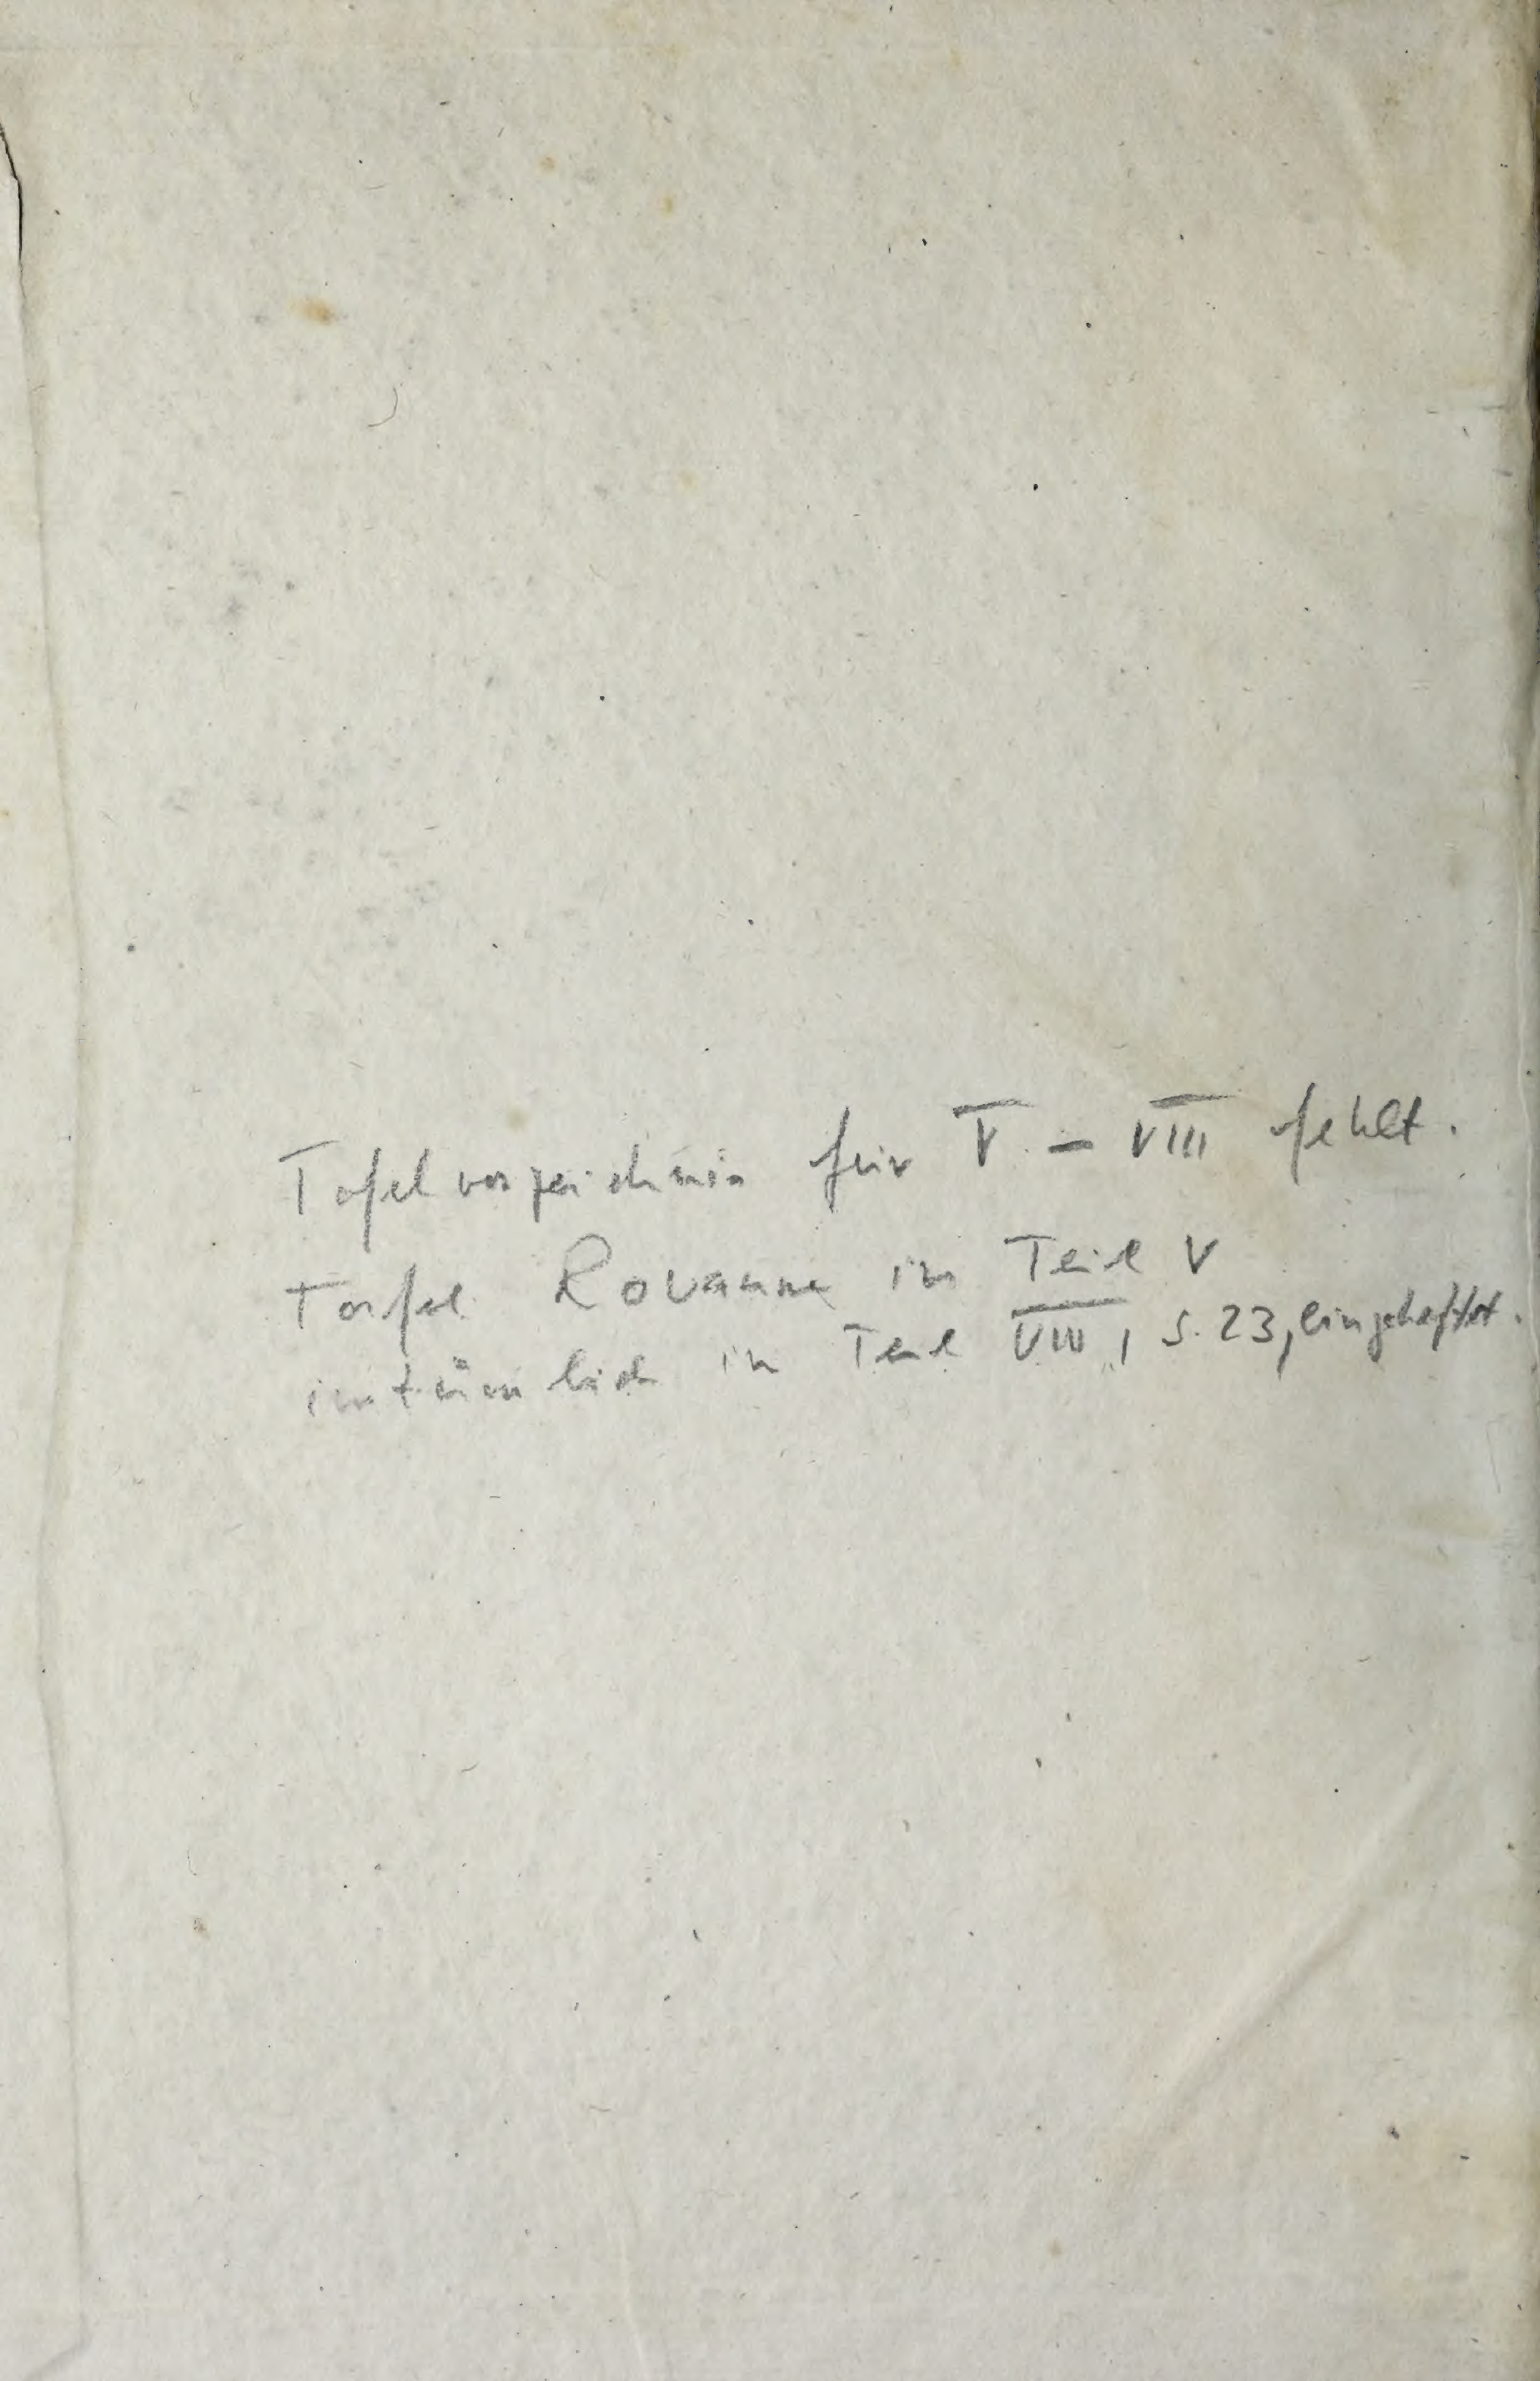 Tafelverzeichnis für V - VIII fehlt.
Tafel Rovanne in Teil V
irrtümlich in Teil VIII, S. 23, eingeheftet.